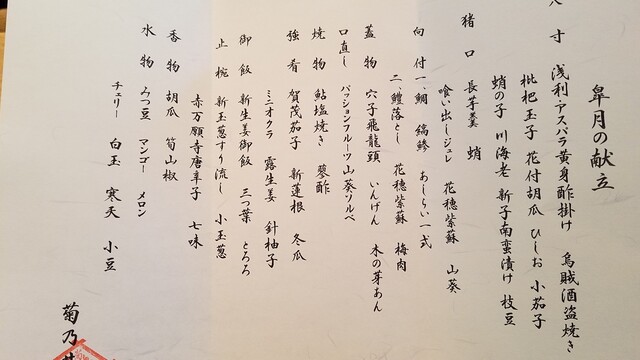 皐月の献立
八寸 浅利アスパラ黄身酢掛け 烏賊酒盗焼き
枇杷玉子 花付胡瓜 ひしお 小茄子
蛸の子 川海老 新子南蛮漬け 枝豆
猪口 長芋羹 蛸
喰い出しジュレ 花穂紫蘇 山葵
向付 一、鯛 縞鯵 あしらい一式
二、鱧落とし 花穂紫蘇 梅肉
蓋物 穴子飛龍頭 いんげん 木の芽あん
口直し パッションフルーツ山葵ソルベ
焼物 鮎塩焼き 蓼酢
強肴 賀茂茄子 新蓮根 冬瓜
ミニオクラ 露生姜 針柚子
御飯 新生姜御飯 三つ葉 とろろ
止椀 新玉葱すり流し 小玉葱
赤万願寺唐辛子 七味
香物 胡瓜 筍山椒
水物 みつ豆 マンゴー メロン
チェリー 白玉 寒天 小豆
菊乃